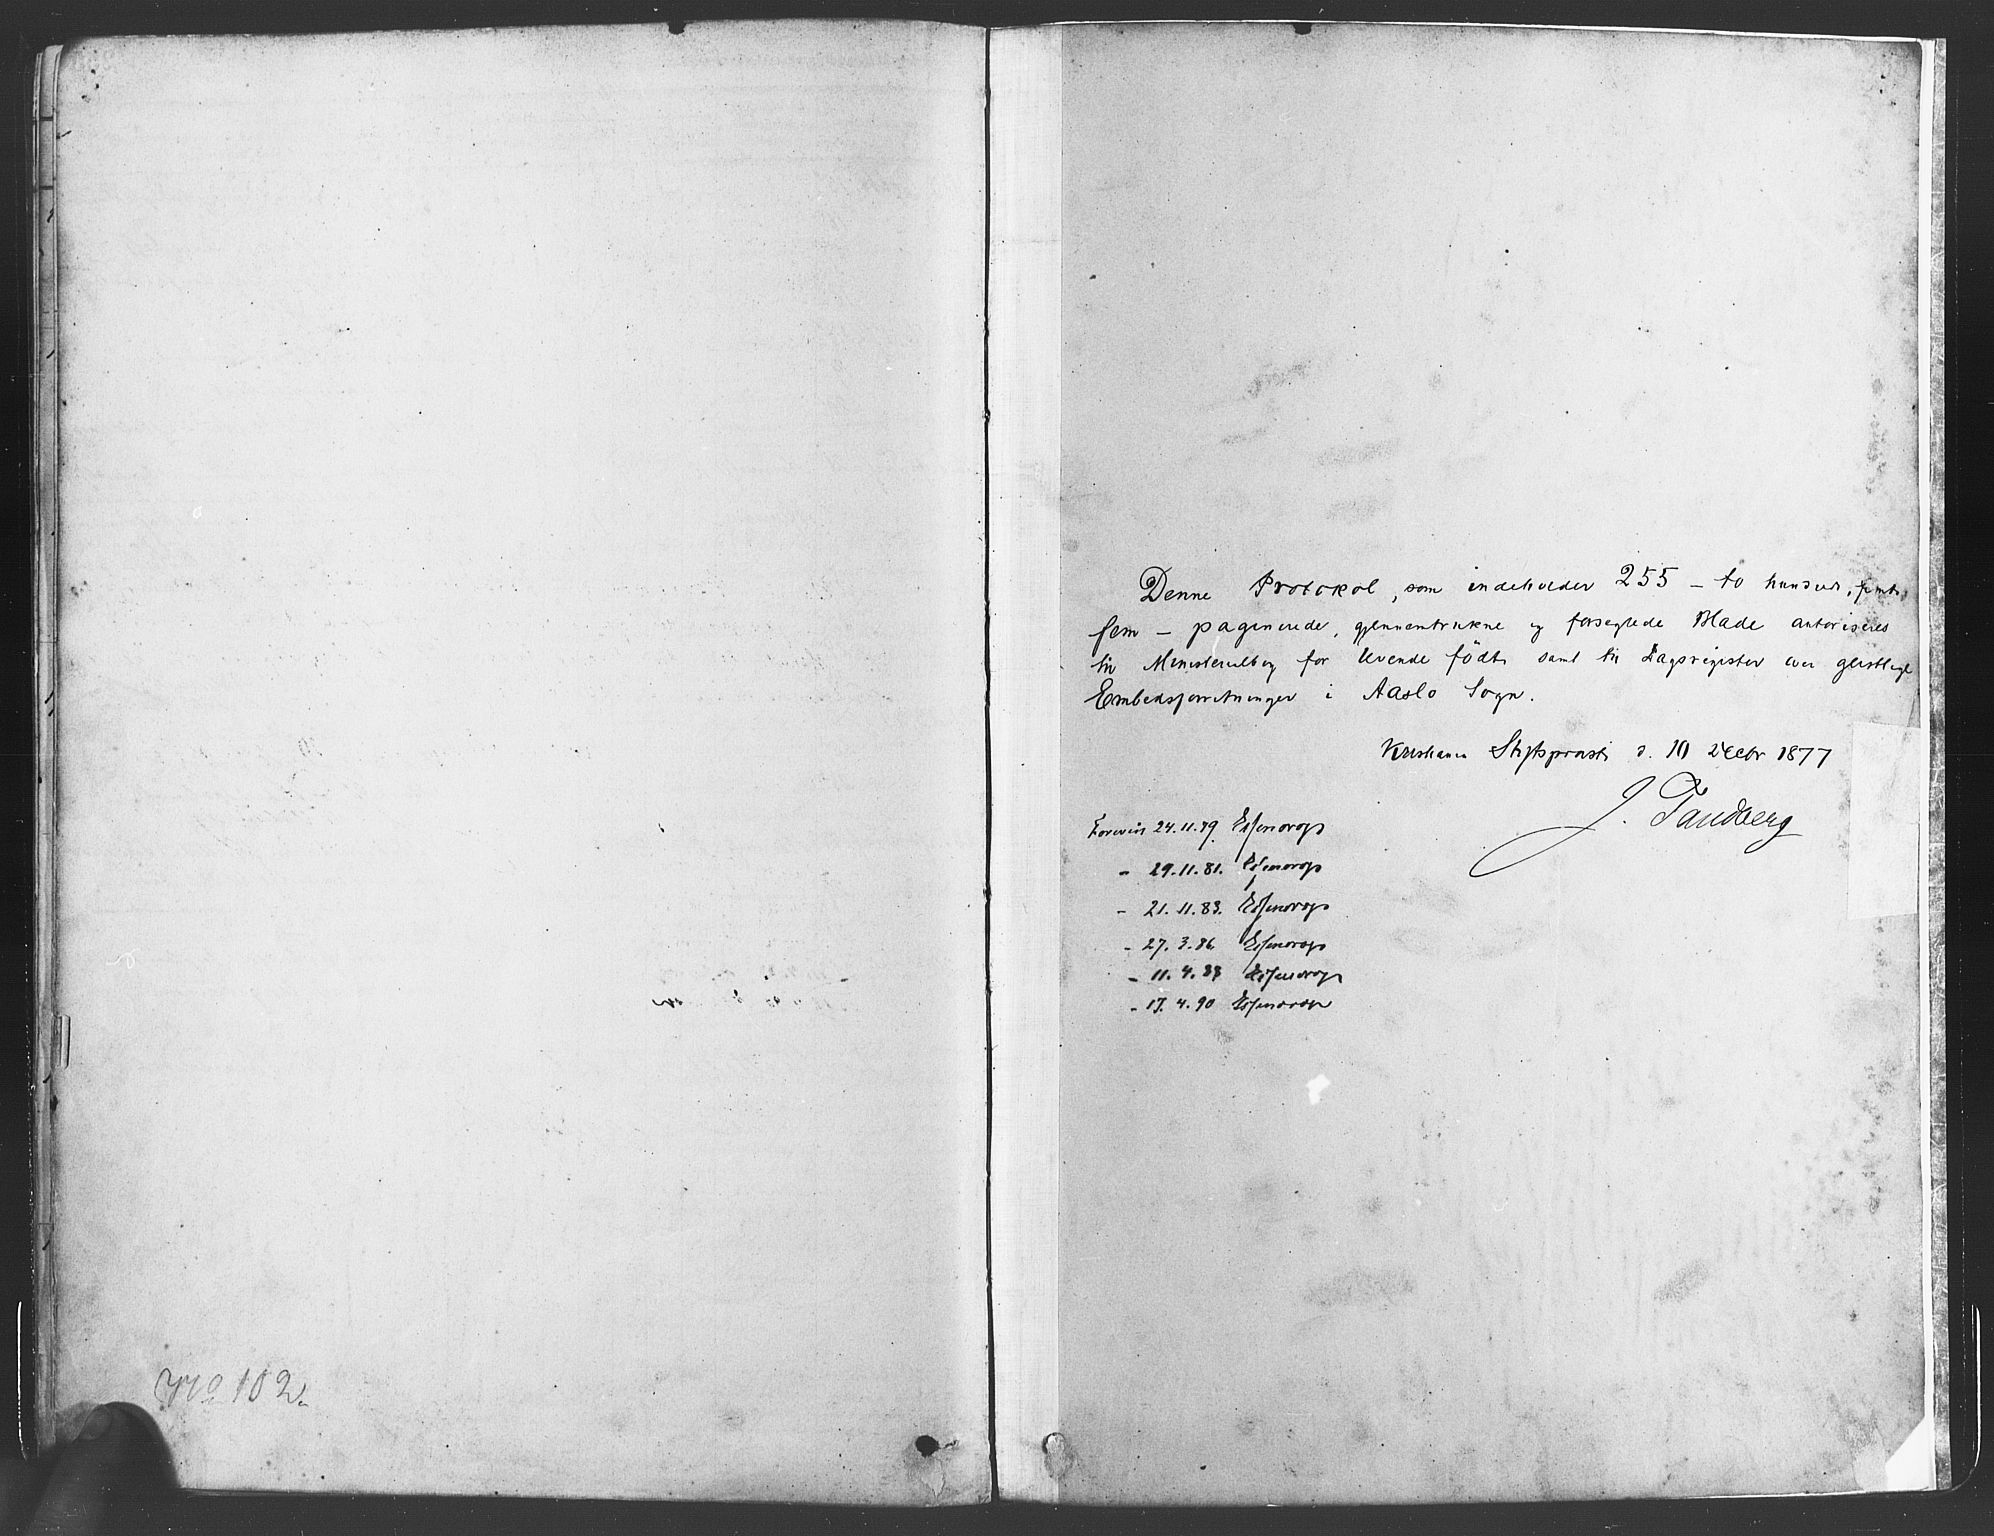 No 102.
Denne Protokol, som indeholder 255 – to hundred, femti
fem – paginerede, gjennemtrukne og forseglede Blade autoriseres
til Ministerialbog for levende fødte samt til Dagsregister over geistlige
Embedsforretninger i Aaslo Sogn.
Kristiania Stiftsprovsti d. 10 Decbr 1877
J. Tandberg
Foreviist 24.11.79. Essendrop
– 29.11.81. Essendrop
– 21.11.83. Essendrop
– 27.3.86. Essendrop
– 11.4.88 Essendrop
– 17.4.90 Essendrop